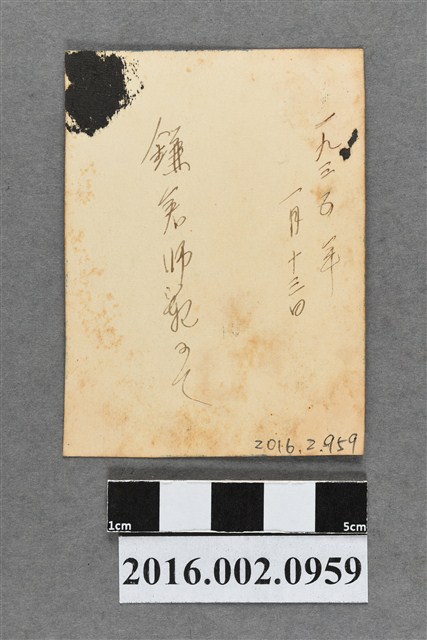 一九三五年
一月十三日
鎌倉師範にて
2016.2.959
1cm
5cm
2016.002.0959